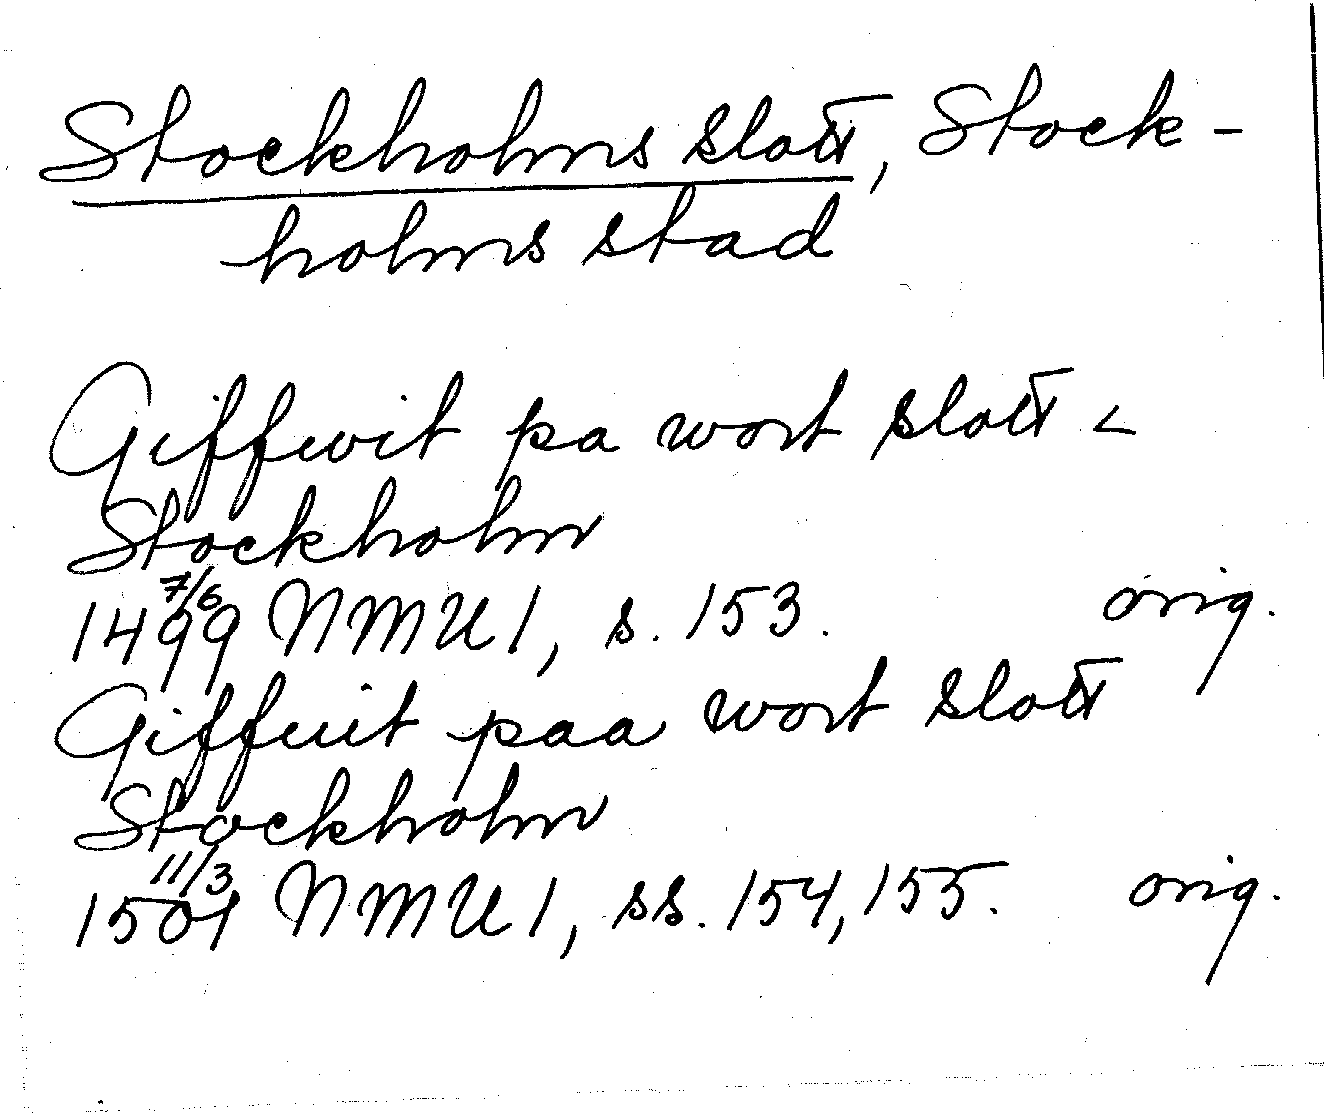 Stockholms slott, Stock-
holms stad
Giffwit pa wort slott <
Stockholm
1499 7/6 NMU 1, s. 153. orig.
Giffuit paa wort slott
Stockholm
1501 11/3 NMU 1, ss. 154, 155. orig.